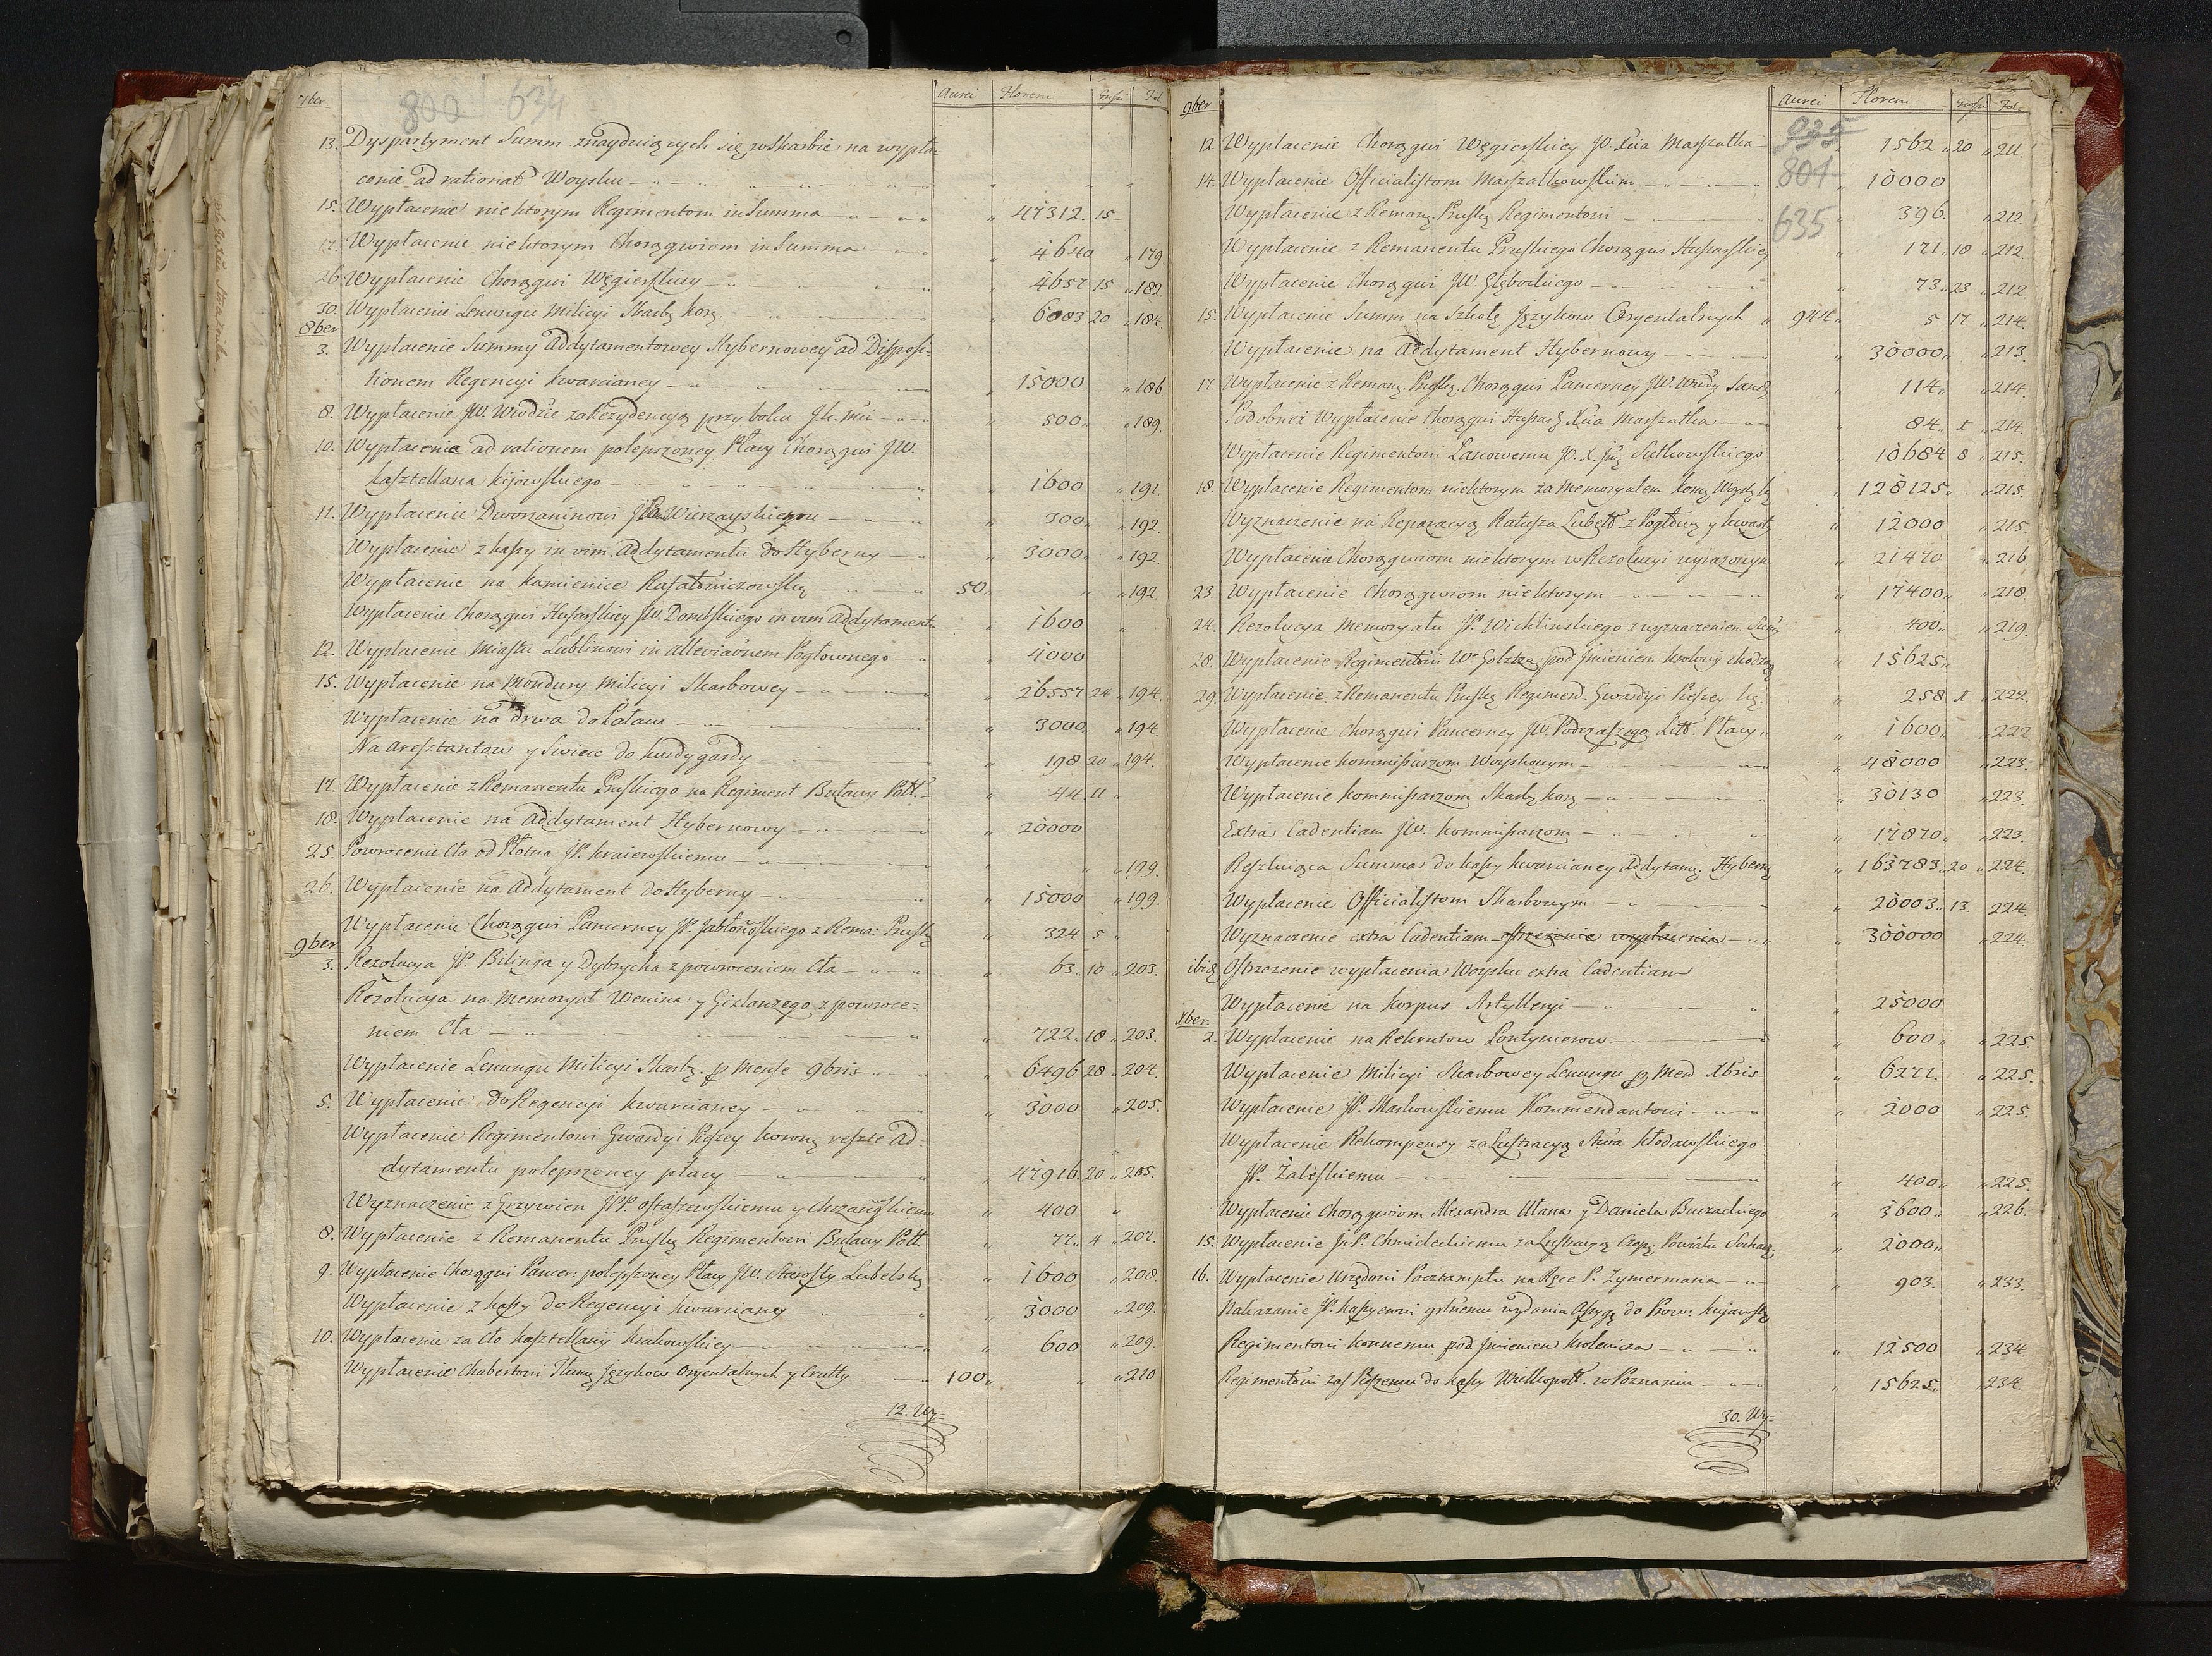 7ber 800 634 Aurei Floreni grossi Fol.
13. Dyspartyment Summ znayduiących się w Skarbie na wypła-
cenie ad rationem Woysku
15. Wypłacenie niektorym Regimentom in Summa 47312. 15
17. Wypłacenie niektorym Chorągwiom in Summa 4640 179.
26. Wypłacenie Chorągwi Węgierskiey 4657 15 182.
30. Wypłacenie Lenungu Milicyi Skarbz Korz. 6003 20 184.
8ber
3. Wypłacenie Summy Addytamentowey Hybernowey ad Disposi-
tionem Regencyi Kwarcianey 15000 186.
8. Wypłacenie JW. Wrodzie za Rezydencyą przy boku 500 189.
10. Wypłacenie ad rationem polepszoney Płacy Chorągwi JW.
Kasztellana Kijowskiego 1600 191.
11. Wypłacenie Dworzaninowi Wierzayskiemu 300 192
Wypłacenie z kassy in vim Addytamentu do Hyberny 3000 192.
Wypłacenie na kamienice Rafałowiczowską 50 192.
Wypłacenie Chorągwi Husarskiey JW. Dombskiego in vim Addytamentu 1600
12. Wypłacenie Miastu Lublinowi in alleviaonem Pogłownego 4000
15. Wypłacenie na Mondury Milicyi Skarbowey 26557 24 194.
Wypłacenie na drwa do Pałacu 3000 194.
Na aresztantow y Swiece do kurdygardy 198 20 194.
17. Wypłacenie z Remanentu Pruskiego na Regiment Buławy Poll. 44 11
18. Wypłacenie na Addytament Hybernowy 20000
25. Powrocenie Cła od Płotna JP. Kraiewskiemu 199.
26. Wypłacenie na Addytament do Hyberny 15000 199.
Wypłacenie Chorągwi Pancerney JP. Jabłonowskiego z Rema: Prusk. 324 5
9ber
3. Rezolucya JP. Bilinga y Dybrycha z powroceniem Cła 63 10 203.
Rezolucya na Memoryał Wenina y Gizlanzego z powroce-
niem Cła 722 18 203.
Wypłacenie Lenungu Milicyi Skarbz. p Mense 9bris 6496 28 204.
5. Wypłacenie do Regencyi Kwarcianey 3000 205.
Wypłacenie Regimentowi Gwardyi Pieszey Koronz reszte Ad-
dytamentu polepszoney płacy 47916 20 205.
Wyznaczenie z Grzywien JPP. Ostaszewskiemu y Chrzanoskiemu 400
8. Wypłacenie z Remanentu Pruskz Regimentowi Buławy Poll. 77 4 207.
9. Wypłacenie Chorągwi Pancer: polepszoney Płacy JW. Starosty Lubelskz 1600 208.
Wypłacenie z kassy do Regencyi Kwarcianey 3000 209.
10. Wypłacenie za Cło Kasztellanij Krakowskiey 600 209.
Wypłacenie Chabertowi Tłumz Języków Oryentalnych y Crutty 100 210
12. Wy-
9ber Aurei Floreni grossi Fol.
935
804
635
12. Wypłacenie Chorągwi Węgierskiey JW. Xcia Marszałka 1562 20 211.
14. Wypłacenie Officialistom Marszałkowskim 10000
Wypłacenie z Remanz. Pruskz Regimentowi 396 212.
Wypłacenie z Remanentu Pruskiego Chorągwi Husarskiey 171 18 212
Wypłacenie Chorągwi JW. Głębockiego 73 23 212
15. Wypłacenie Summ na Szkołę Języków Oryentalnych 944 5 17 214.
Wypłacenie na Addytament Hybernowy 30000 213.
17. Wypłacenie z Remanz. Pruskz. Chorągwi Pancerney JW. Wwdy Sandz 114 214
Podobneż Wypłacenie Chorągwi Husarz Xcia Marszałka 84 x 214.
Wypłacenie Regimentowi Łanowemu JO. X. Jmz Sułkowskiego 10684 8 215.
18. Wypłacenie Regimentom niektorym za Memoryałem Komz Woysk. 128125 215.
Wyznaczenie na Reparacyą Ratusza Lubell. z Pogłowz y kwarty 12000 215.
Wypłacenie Chorągwiom niektorym w Rezolucyi wyrażonym 21470 216
23. Wypłacenie Chorągwiom niektorym 17400 218.
24. Rezolucya Memoryału JP. Wichlinskiego z wyznaczeniem 400 219.
28. Wypłacenie Regimentowi Wo Goltza pod Jmieniem Krolowy 15625
29. Wypłacenie z Remanentu Pruskz Regimend. Gwardyi Pieszey 258 x 222.
Wypłacenie Chorągwi Pancerney JW. Podczaszego Litt. Płacy 1600 222
Wypłacenie Kommissarzom Woyskowym 48000 223.
Wypłacenie Kommissarzom Skarbz Korz 30130 223
Extra Cadentiam JW. Kommissarzom 17870 223.
Resztuiąca Summa do kassy Kwarcianey Addytamz. Hybernz 163783 20 224.
Wypłacenie Officialistom Skarbowym 20003 13. 224.
Wyznaczenie extra Cadentiam ostrzeżenie wypłacenia 300000 224.
ibid. Ostrzeżenie wypłacenia Woysku extra Cadentiam
Wypłacenie na Korpus Artylleryi 25000
Xber.
2. Wypłacenie na Rekrutow Pontynierow 600 225.
Wypłacenie Milicyi Skarbowey Lenungu p Mens Xbris 6271. 225.
Wypłacenie JP. Markowskiemu Kommendantowi 2000 225.
Wypłacenie Rekompensy za Lustracyą Stwa Kłodawskiego
JP. Zaleskiemu 400 225.
Wypłacenie Chorągwiom Alexandra Ułana y Daniela Buczackiego 3600 226.
15. Wypłacenie JP. Chmieleckiemu za Lustracyą Czopz. Powiatu Sochacz. 2000
16. Wypłacenie Urzędowi Pocztamptu na Ręce P. Zymermana 903. 233.
Nakazanie JP. Kassyerowi gslnemu wydania Assygz do Prow: Kujawskz
Regimentowi Konnemu pod Jmieniem Krolewicza 12500 234.
Regimentowi zas Pieszemu do kassy Wielkopoll. w Poznaniu 15625 234.
30. Wy-